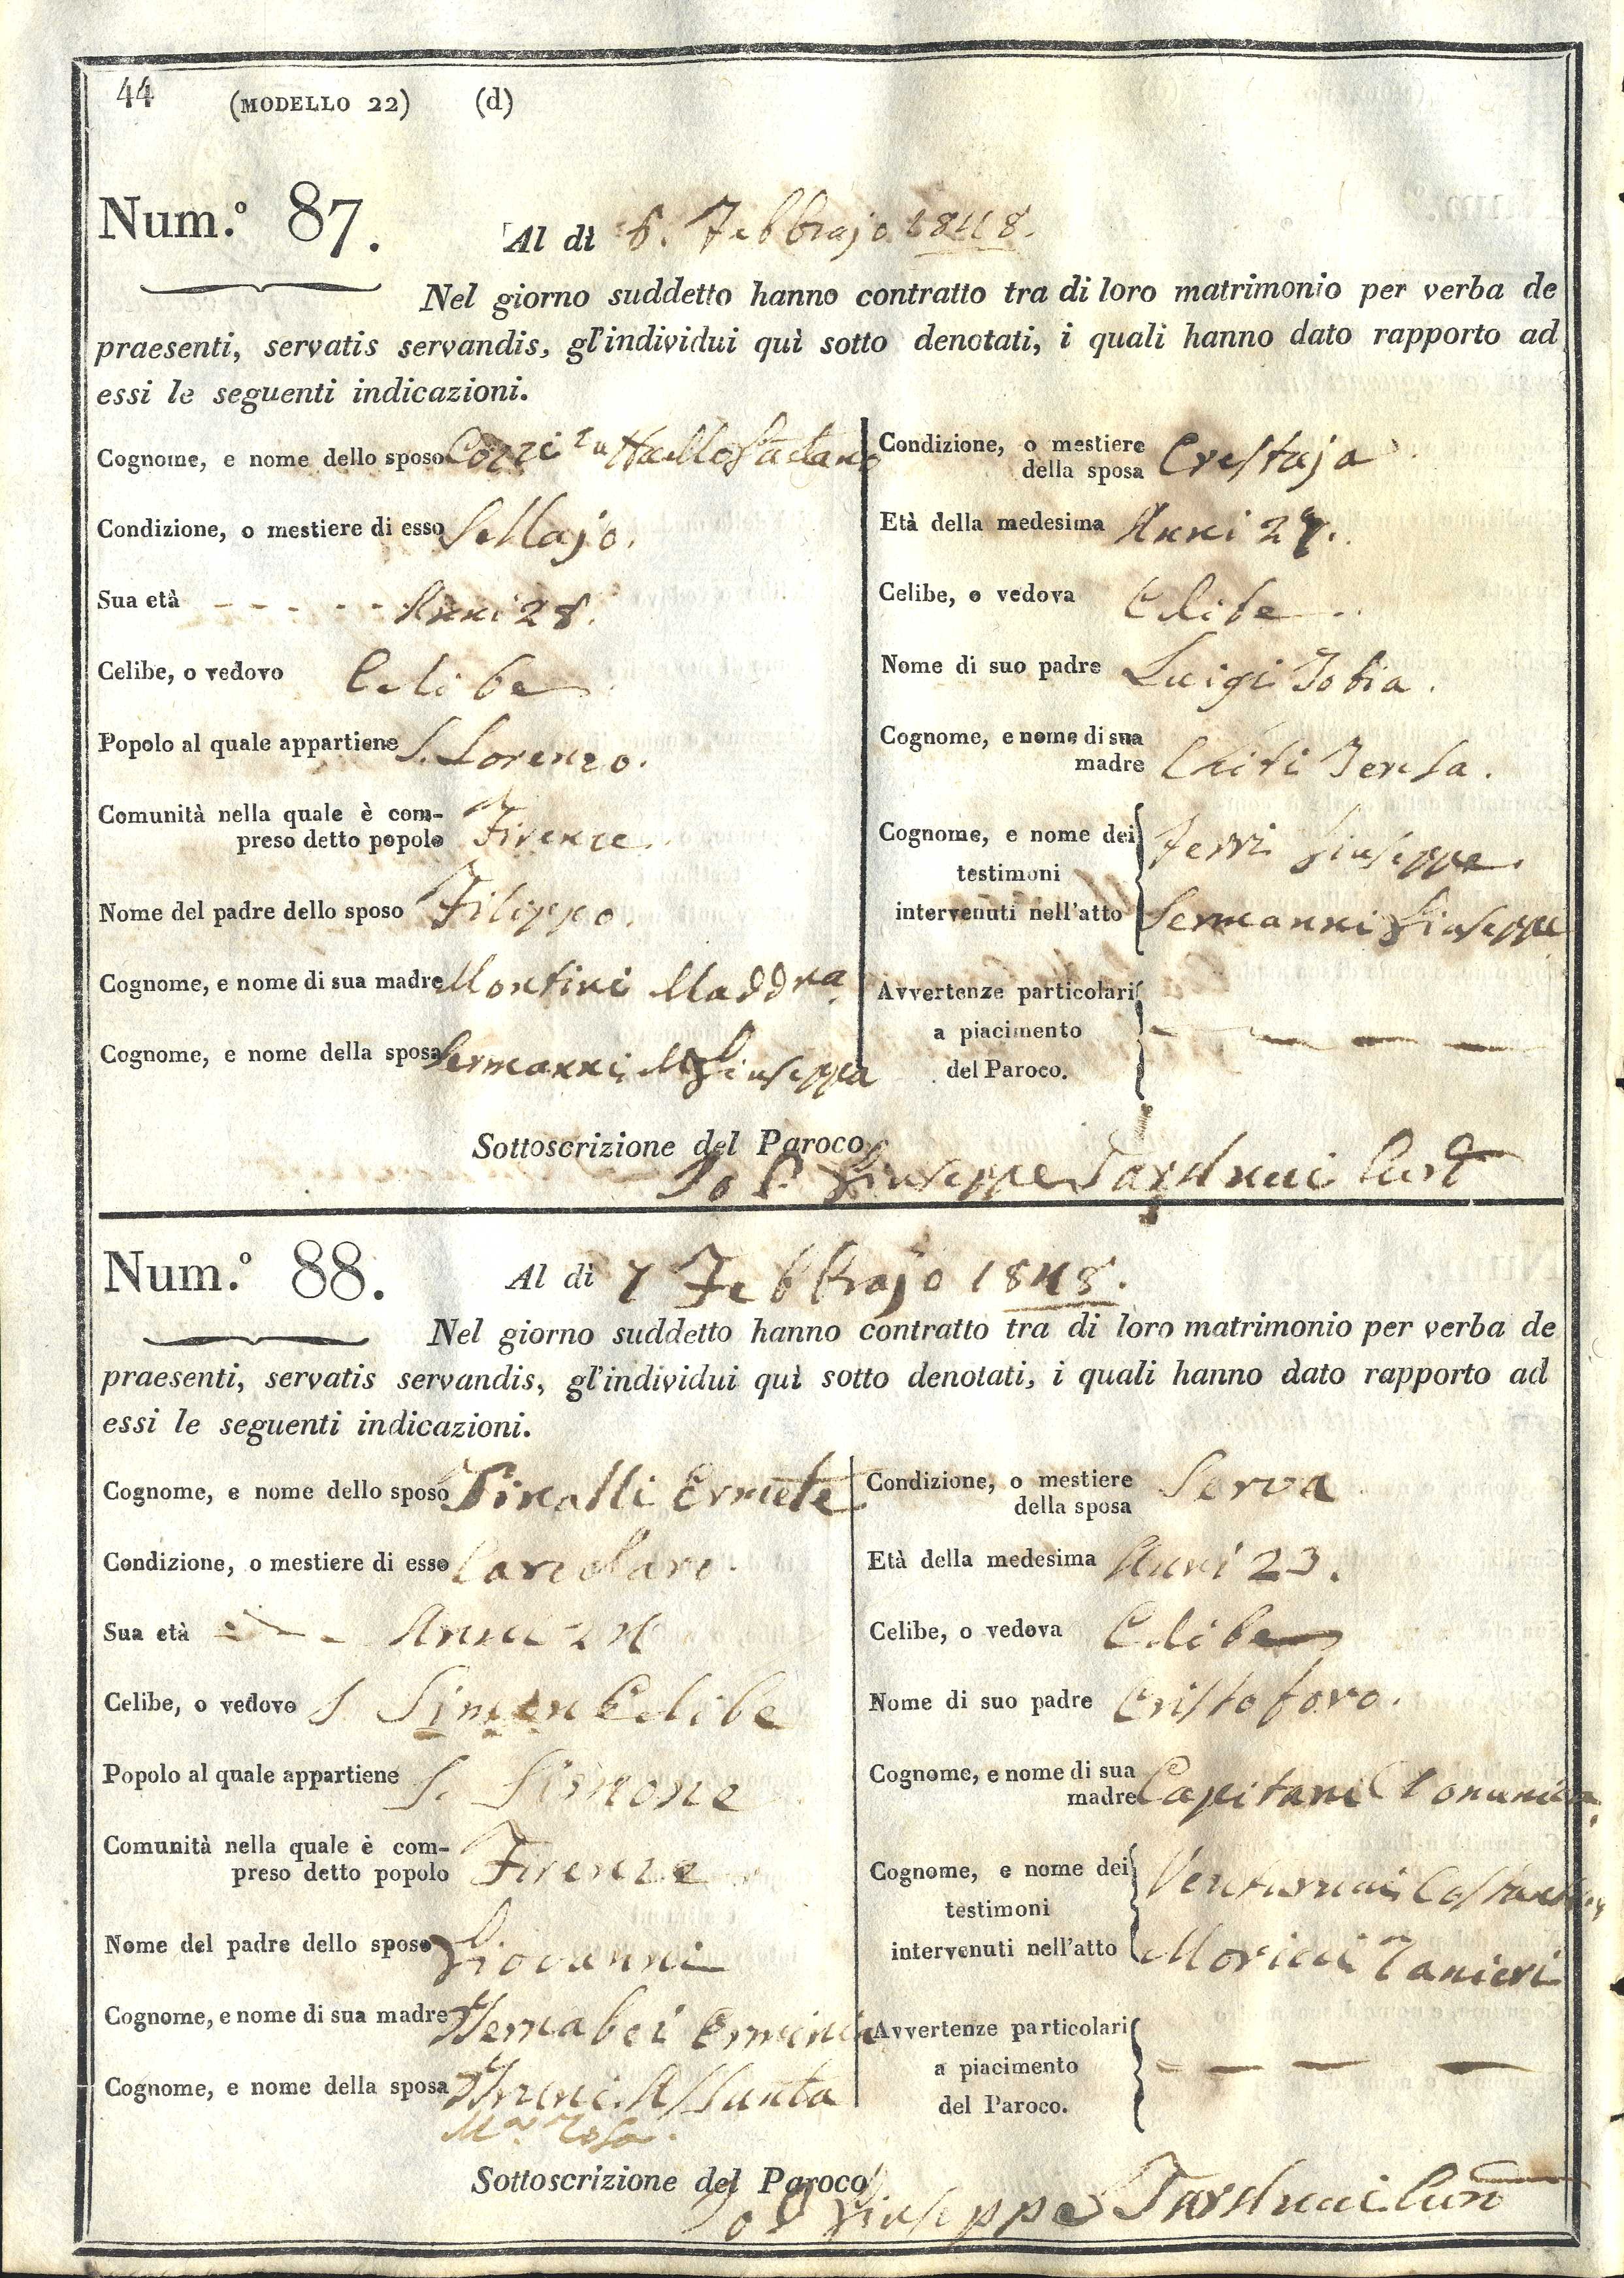 44 (MODELLO 22) (d)
Num.º 87. Al dì 6. Febbrajo 1848.
Nel giorno suddetto hanno contratto tra di loro matrimonio per verba de
praesenti, servatis servandis, gl'individui quì sotto denotati, i quali hanno dato rapporto ad
essi le seguenti indicazioni.
Cognome, e nome dello sposo Cozzi Gaetano
Condizione, o mestiere di esso Sellajo.
Sua età Anni 28.
Celibe, o vedovo Celibe
Popolo al quale appartiene S. Lorenzo.
Comunità nella quale è com-
preso detto popolo Firenze.
Nome del padre dello sposo Filippo.
Cognome, e nome di sua madre Montini Maddna
Cognome, e nome della sposa Sermanni Ma Giuseppa
Condizione, o mestiere
della sposa Crestaja
Età della medesima Anni 27.
Celibe, o vedova Celibe
Nome di suo padre Luigi Tobia.
Cognome, e nome di sua
madre Chiti Teresa.
Cognome, e nome dei Ferri Giuseppe.
testimoni
intervenuti nell'atto Sermanni Giuseppe
Avvertenze particolari
a piacimento
del Paroco.
Sottoscrizione del Paroco
Io P. Giuseppe Tarducci
Num.º 88. Al dì 7 Febbrajo 1848.
Nel giorno suddetto hanno contratto tra di loro matrimonio per verba de
praesenti, servatis servandis, gl'individui quì sotto denotati, i quali hanno dato rapporto ad
essi le seguenti indicazioni.
Cognome, e nome dello sposo Ermete
Condizione, o mestiere di esso
Sua età Anni 24
Celibe, o vedovo S Simon Celibe
Popolo al quale appartiene S. Simone
Comunità nella quale è com-
preso detto popolo Firenze
Nome del padre dello sposo Giovanni
Cognome, e nome di sua madre Bernabei Erminia
Cognome, e nome della sposa Assunta
Ma. Rosa.
Condizione, o mestiere
della sposa Serva
Età della medesima Anni 23.
Celibe, o vedova Celibe
Nome di suo padre Cristoforo.
Cognome, e nome di sua
madre Capitani
Cognome, e nome dei Venturini
testimoni
intervenuti nell'atto Ranieri
Avvertenze particolari
a piacimento
del Paroco.
Sottoscrizione del Paroco
Io P Giuseppe Tarducci